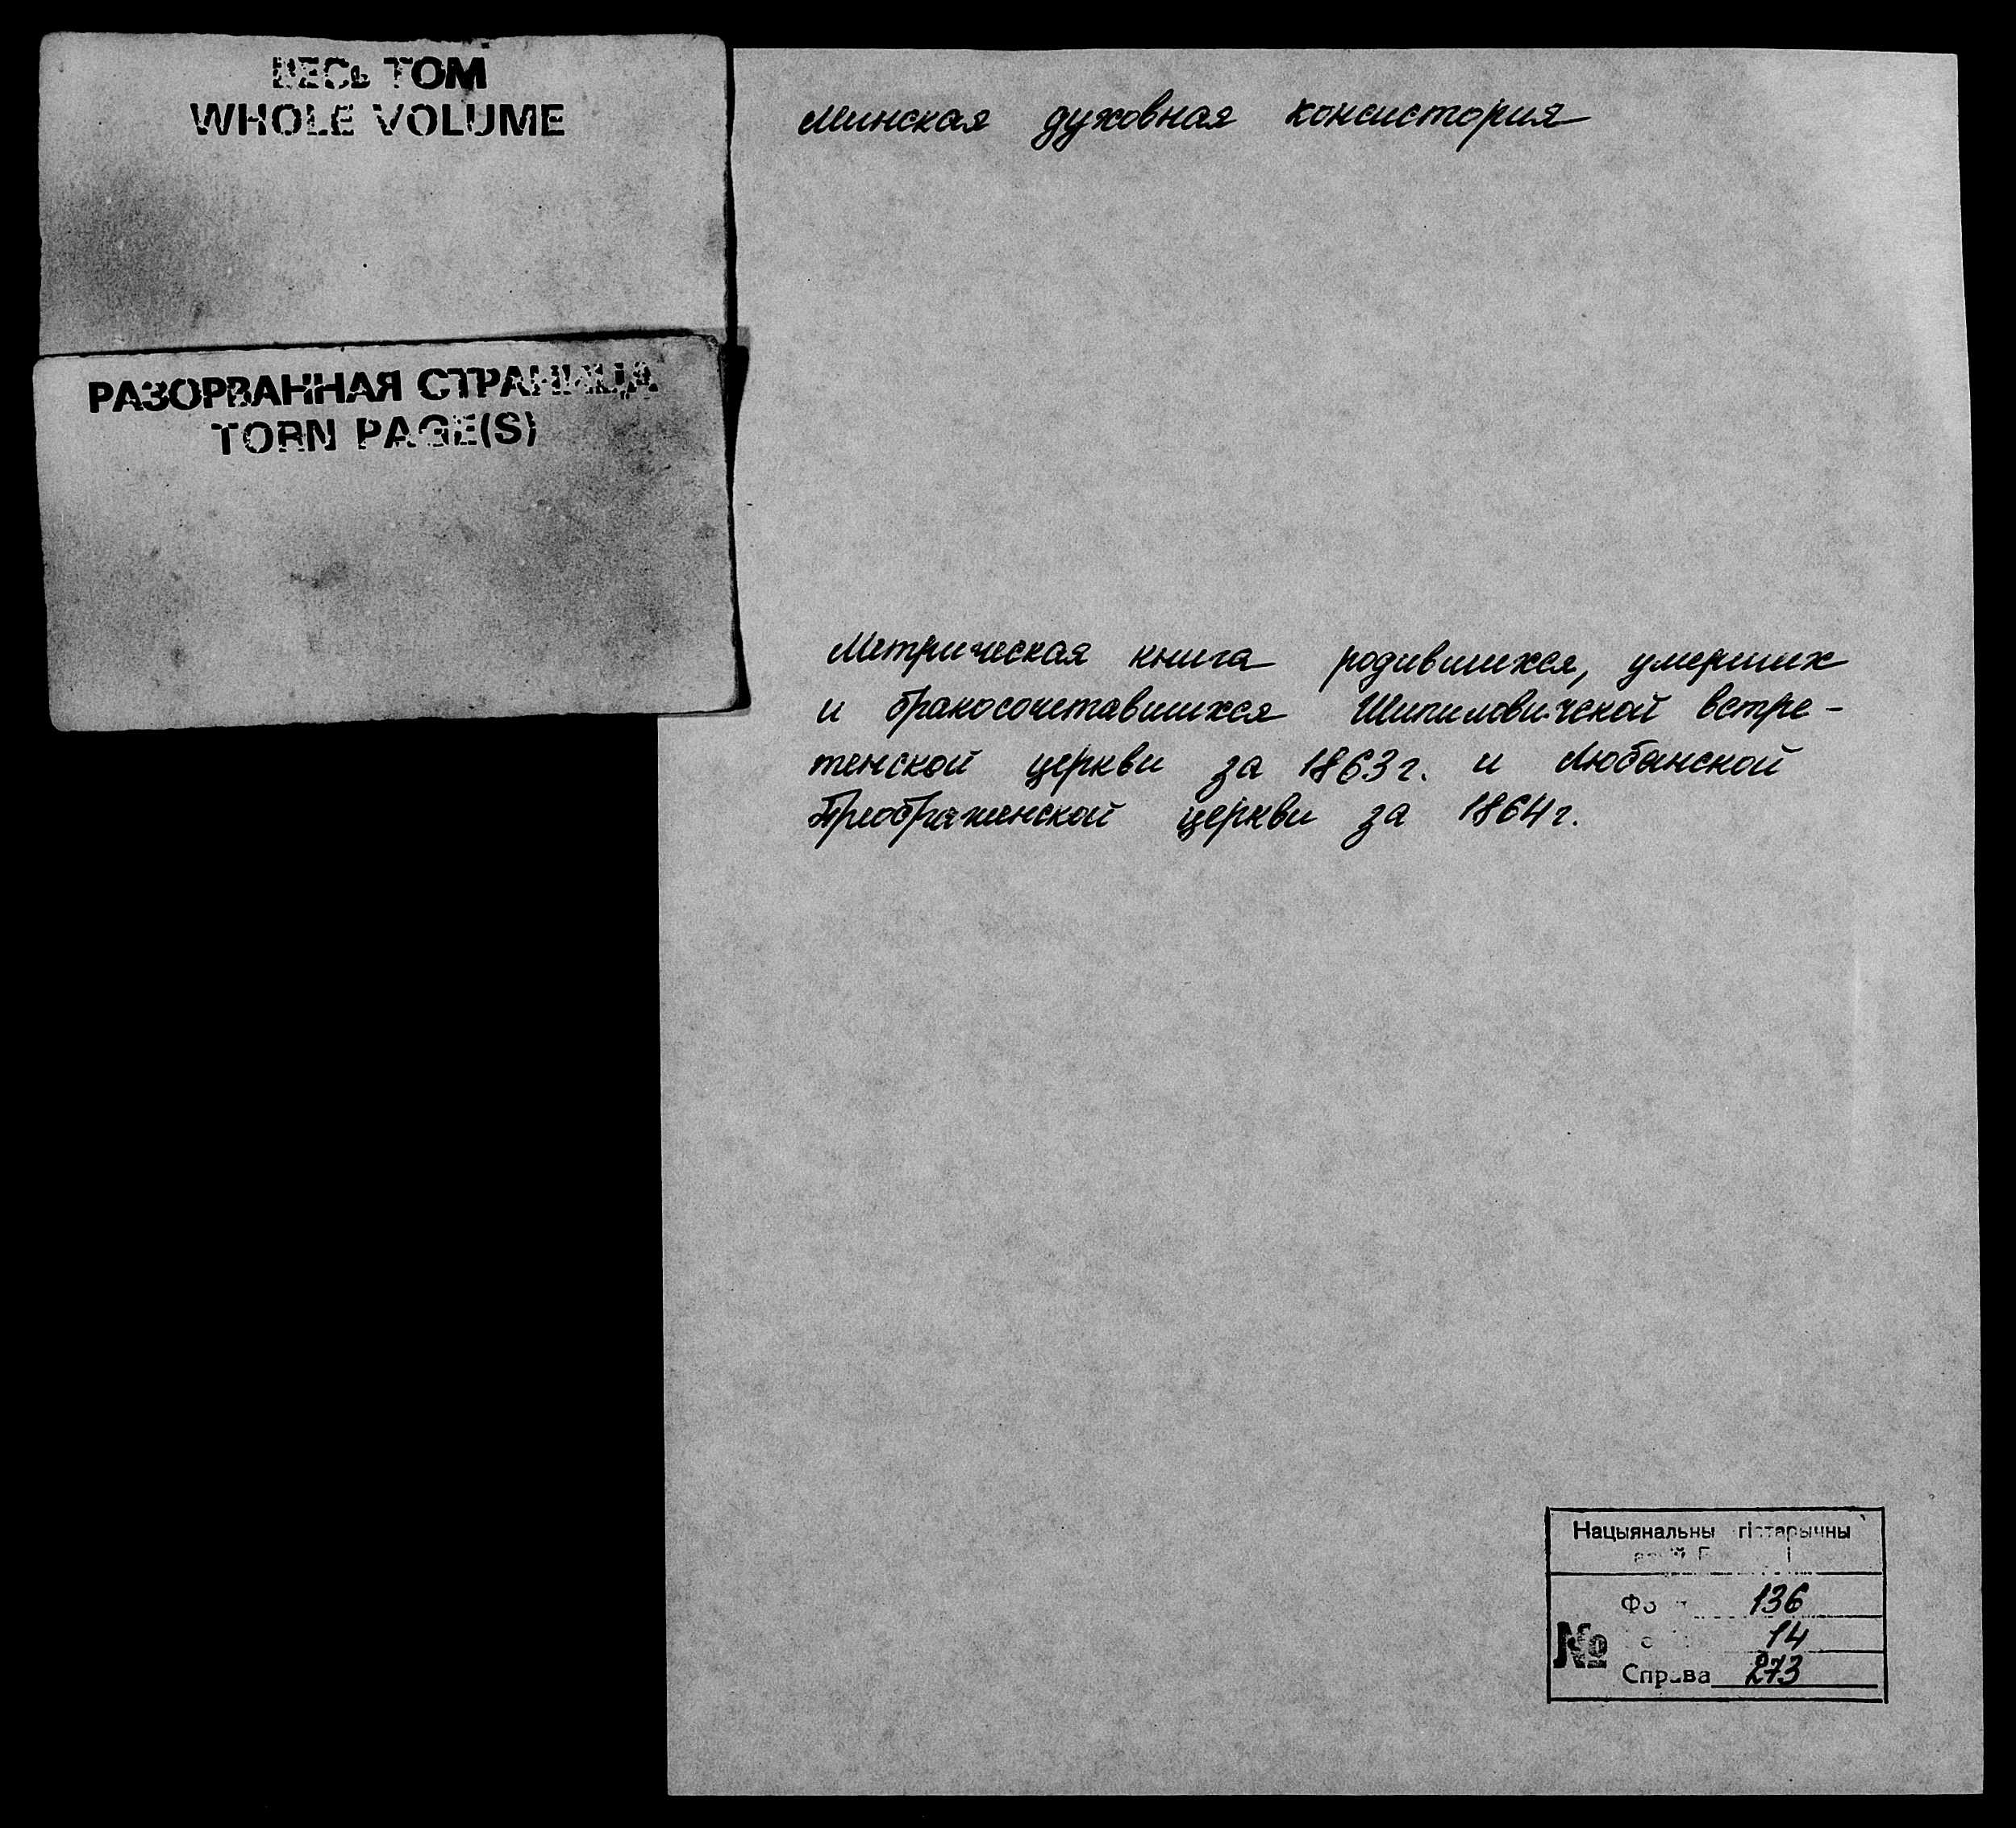 ВЕСЬ ТОМ
WHOLE VOLUME
РАЗОРВАННАЯ СТРАНИЦА
TORN PAGE(S)
Минская духовная консистория
Метрическая книга родившихся, умерших
и бракосочетавшихся Шипиловичской встре-
тенской церкви за 1863 г. и Любанской
Преображенской церкви за 1864 г.
Нацыянальны гістарычны
136
№ 14
Справа 273